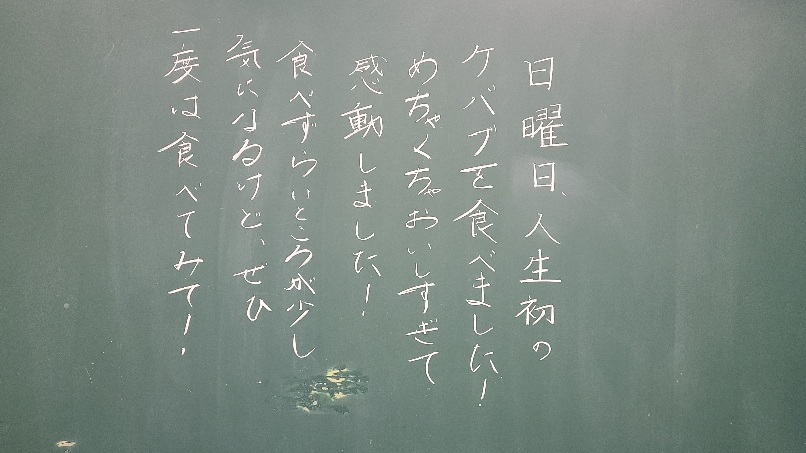 日曜日、人生初の
ケバブを食べました！
めちゃくちゃおいしすぎて
感動しました！
食べずらいところが少し
気になるけど、ぜひ
一度は食べてみて！